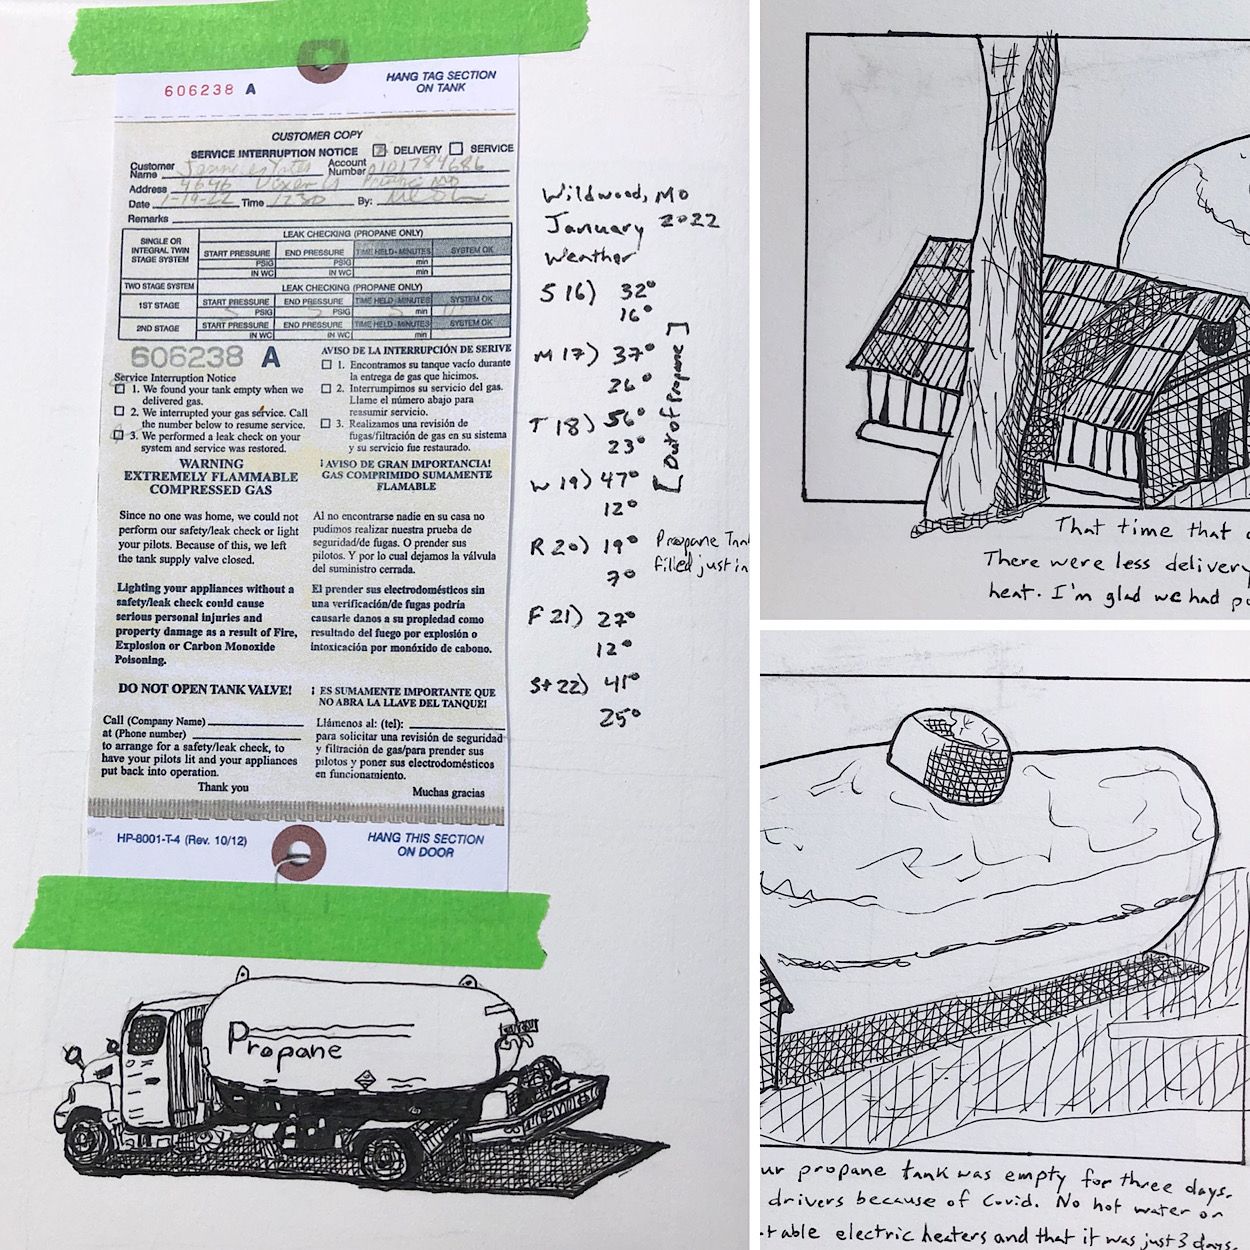 606238 A
HANG TAG SECTION
ON TANK
CUSTOMER COPY
SERVICE INTERRUPTION NOTICE DELIVERY SERVICE
Customer
Name
Account
Number
Address 4646
Date 1-19-22 Time 1230 By:
Remarks
SINGLE OR
INTEGRAL TWIN
STAGE SYSTEM
LEAK CHECKING (PROPANE ONLY)
START PRESSURE END PRESSURE TIME HELD-MINUTES SYSTEM OK
PSIG PSIG min
IN WC IN WC min
TWO STAGE SYSTEM LEAK CHECKING (PROPANE ONLY)
1ST STAGE START PRESSURE END PRESSURE TIME HELD-MINUTES SYSTEM OK
PSIG PSIG min
2ND STAGE START PRESSURE END PRESSURE TIME HELD-MINUTES SYSTEM OK
IN WC IN WC min
606238 A
Service Interruption Notice
1. We found your tank empty when we
delivered gas.
2. We interrupted your gas service. Call
the number below to resume service.
3. We performed a leak check on your
system and service was restored.
WARNING
EXTREMELY FLAMMABLE
COMPRESSED GAS
Since no one was home, we could not
perform our safety/leak check or light
your pilots. Because of this, we left
the tank supply valve closed.
Lighting your appliances without a
safety/leak check could cause
serious personal injuries and
property damage as a result of Fire,
Explosion or Carbon Monoxide
Poisoning.
DO NOT OPEN TANK VALVE!
Call (Company Name)
at (Phone number)
to arrange for a safety/leak check, to
have your pilots lit and your appliances
put back into operation.
Thank you
AVISO DE LA INTERRUPCIÓN DE SERIVE
1. Encontramos su tanque vacío durante
la entrega de gas que hicimos.
2. Interrumpimos su servicio del gas.
Llame el número abajo para
reasumir servicio.
3. Realizamos una revisión de
fugas/filtración de gas en su sistema
y su servicio fue restaurado.
¡AVISO DE GRAN IMPORTANCIA!
GAS COMPRIMIDO SUMAMENTE
FLAMABLE
Al no encontrarse nadie en su casa no
pudimos realizar nuestra prueba de
seguridad/de fugas. O prender sus
pilotos. Y por lo cual dejamos la válvula
del suministro cerrada.
El prender sus electrodomésticos sin
una verificación/de fugas podría
causarle danos a su propledad como
resultado del fuego por explosión o
intoxicación por monóxido de cabono.
¡ ES SUMAMENTE IMPORTANTE QUE
NO ABRA LA LLAVE DEL TANQUE!
Llámenos al: (tel):
para solicitar una revisión de seguridad
y filtración de gas/para prender sus
pilotos y poner sus electrodomésticos
en funcionamiento.
Muchas gracias
HP-8001-T-4 (Rev. 10/12)
HANG THIS SECTION
ON DOOR
Wildwood, MO
January 2022
Weather
S 16) 32°
16°
M 17) 37°
26°
T 18) 56°
23°
W 19) 47°
12°
R 20) 19°
7°
F 21) 27°
12°
St 22) 41°
25°
[Out of Propane]
Propane
filled just in
Propane
That time that
There were less delivery
heat. I'm glad we had
propane tank was empty for three days.
drivers because of Covid. No hot water or
electric heaters and that it was just 3 days.